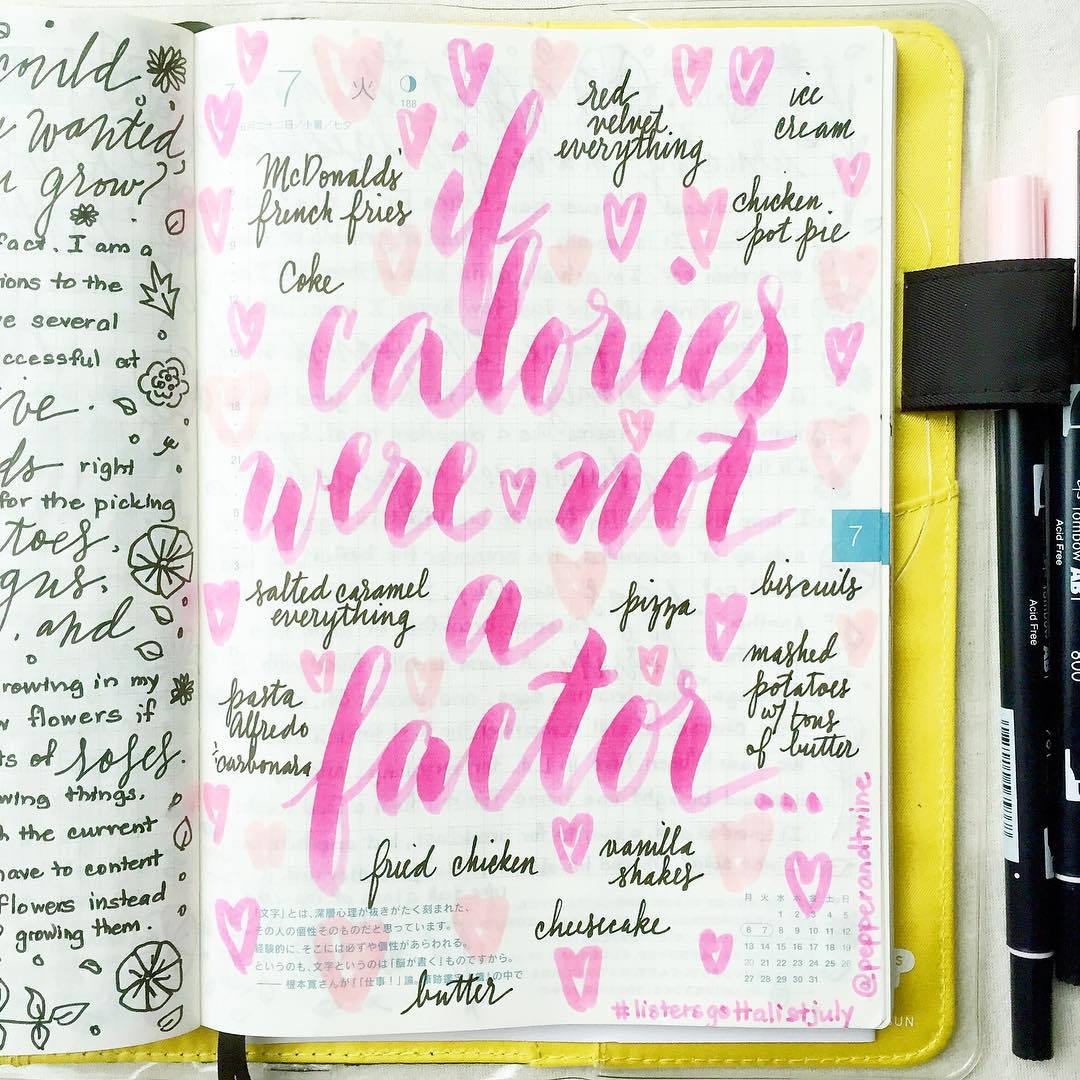 could
wanted
grow?
fact. I am a
tions to the
several
ccessful at
ive.
ds right
for the picking
toes.
gus.
. and
rowing in my
w flowers if
ts of roses.
wing things.
h the current
have to content
flowers instead
growing them.
7 火
188
五月二十二日／小暑／七夕
red
velvet
everything
ice
cream
McDonalds'
french fries
chicken
pot pie
Coke
if
calories
were not
a
factor...
7
salted caramel
everything
pizza
biscuits
mashed
potatoes
w/ tons
of butter
pasta
Alfredo
carbonara
fried chicken
vanilla
shakes
cheesecake
butter
「文字」とは、深層心理が抜きがたく刻まれた、
その人の個性そのものだと思っています。
経験的に、そこには必ずや個性があらわれる。
というのも、文字というのは「脳が書く」ものですから。
—— 根本寛さんが『「仕事！」論。
の中で
月 火 水 木 金 土 日
1 2 3 4 5
6 7 8 9 10 11 12
13 14 15 16 17 18 19
20 21 22 23 24 25 26
27 28 29 30 31
#listersgottalistjuly
@pepperandtwine
Tombow AB
Acid Free
Acid Free
800